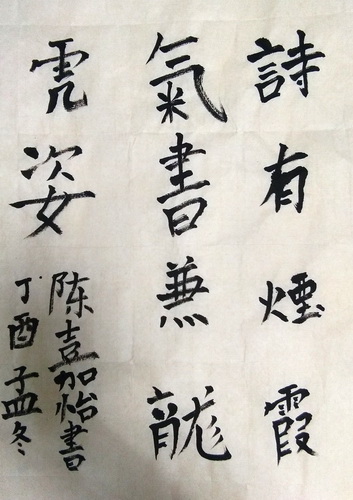 詩有煙霞
氣書兼龍
虎姿
陈嘉怡書
丁酉孟冬